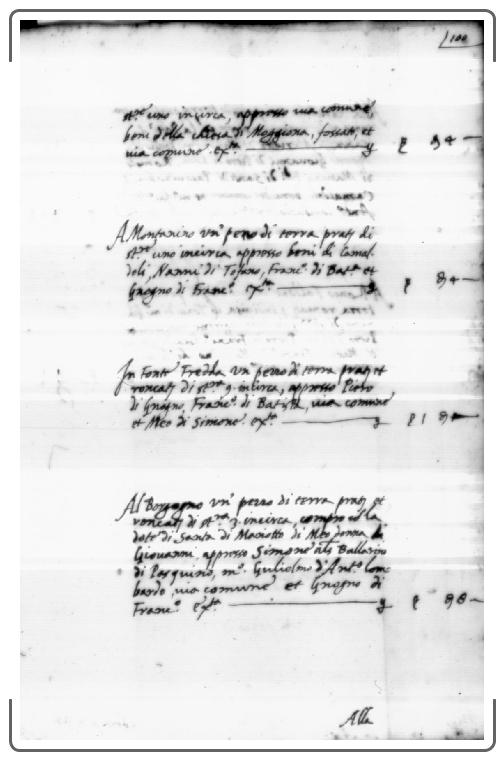 100
st.ro uno incirca, appresso via comune,
boni della chiesa di Moggiona, foscati, et
via comune ex.ta
A Montanino un pezzo di terra prat. di
st.ro uno incirca appresso boni di Camal
doli, Nanni di Tofano, Franc.o di Bat.a et
Gnogno di Franc.o ex.ta
In Fonte Fredda un pezzo di terra prat. et
roncat. di st.ra 9. incirca, appresso Piero
di Gnogno, Franc.o di Batista, via comune
et Meo di Simone ex.ta
Al Borgogno un pezzo di terra prat. et
roncat. di st.ra 3. incirca, compro cō la
dote di Santa di Mariotto di Meo donna di
Giovanni appresso Simone als Ballarino
di Pasquino, m.o Gulielmo d'Ant.o Lom
bardo, via comune et Gnogno di
Franc.o ex.ta
Alla